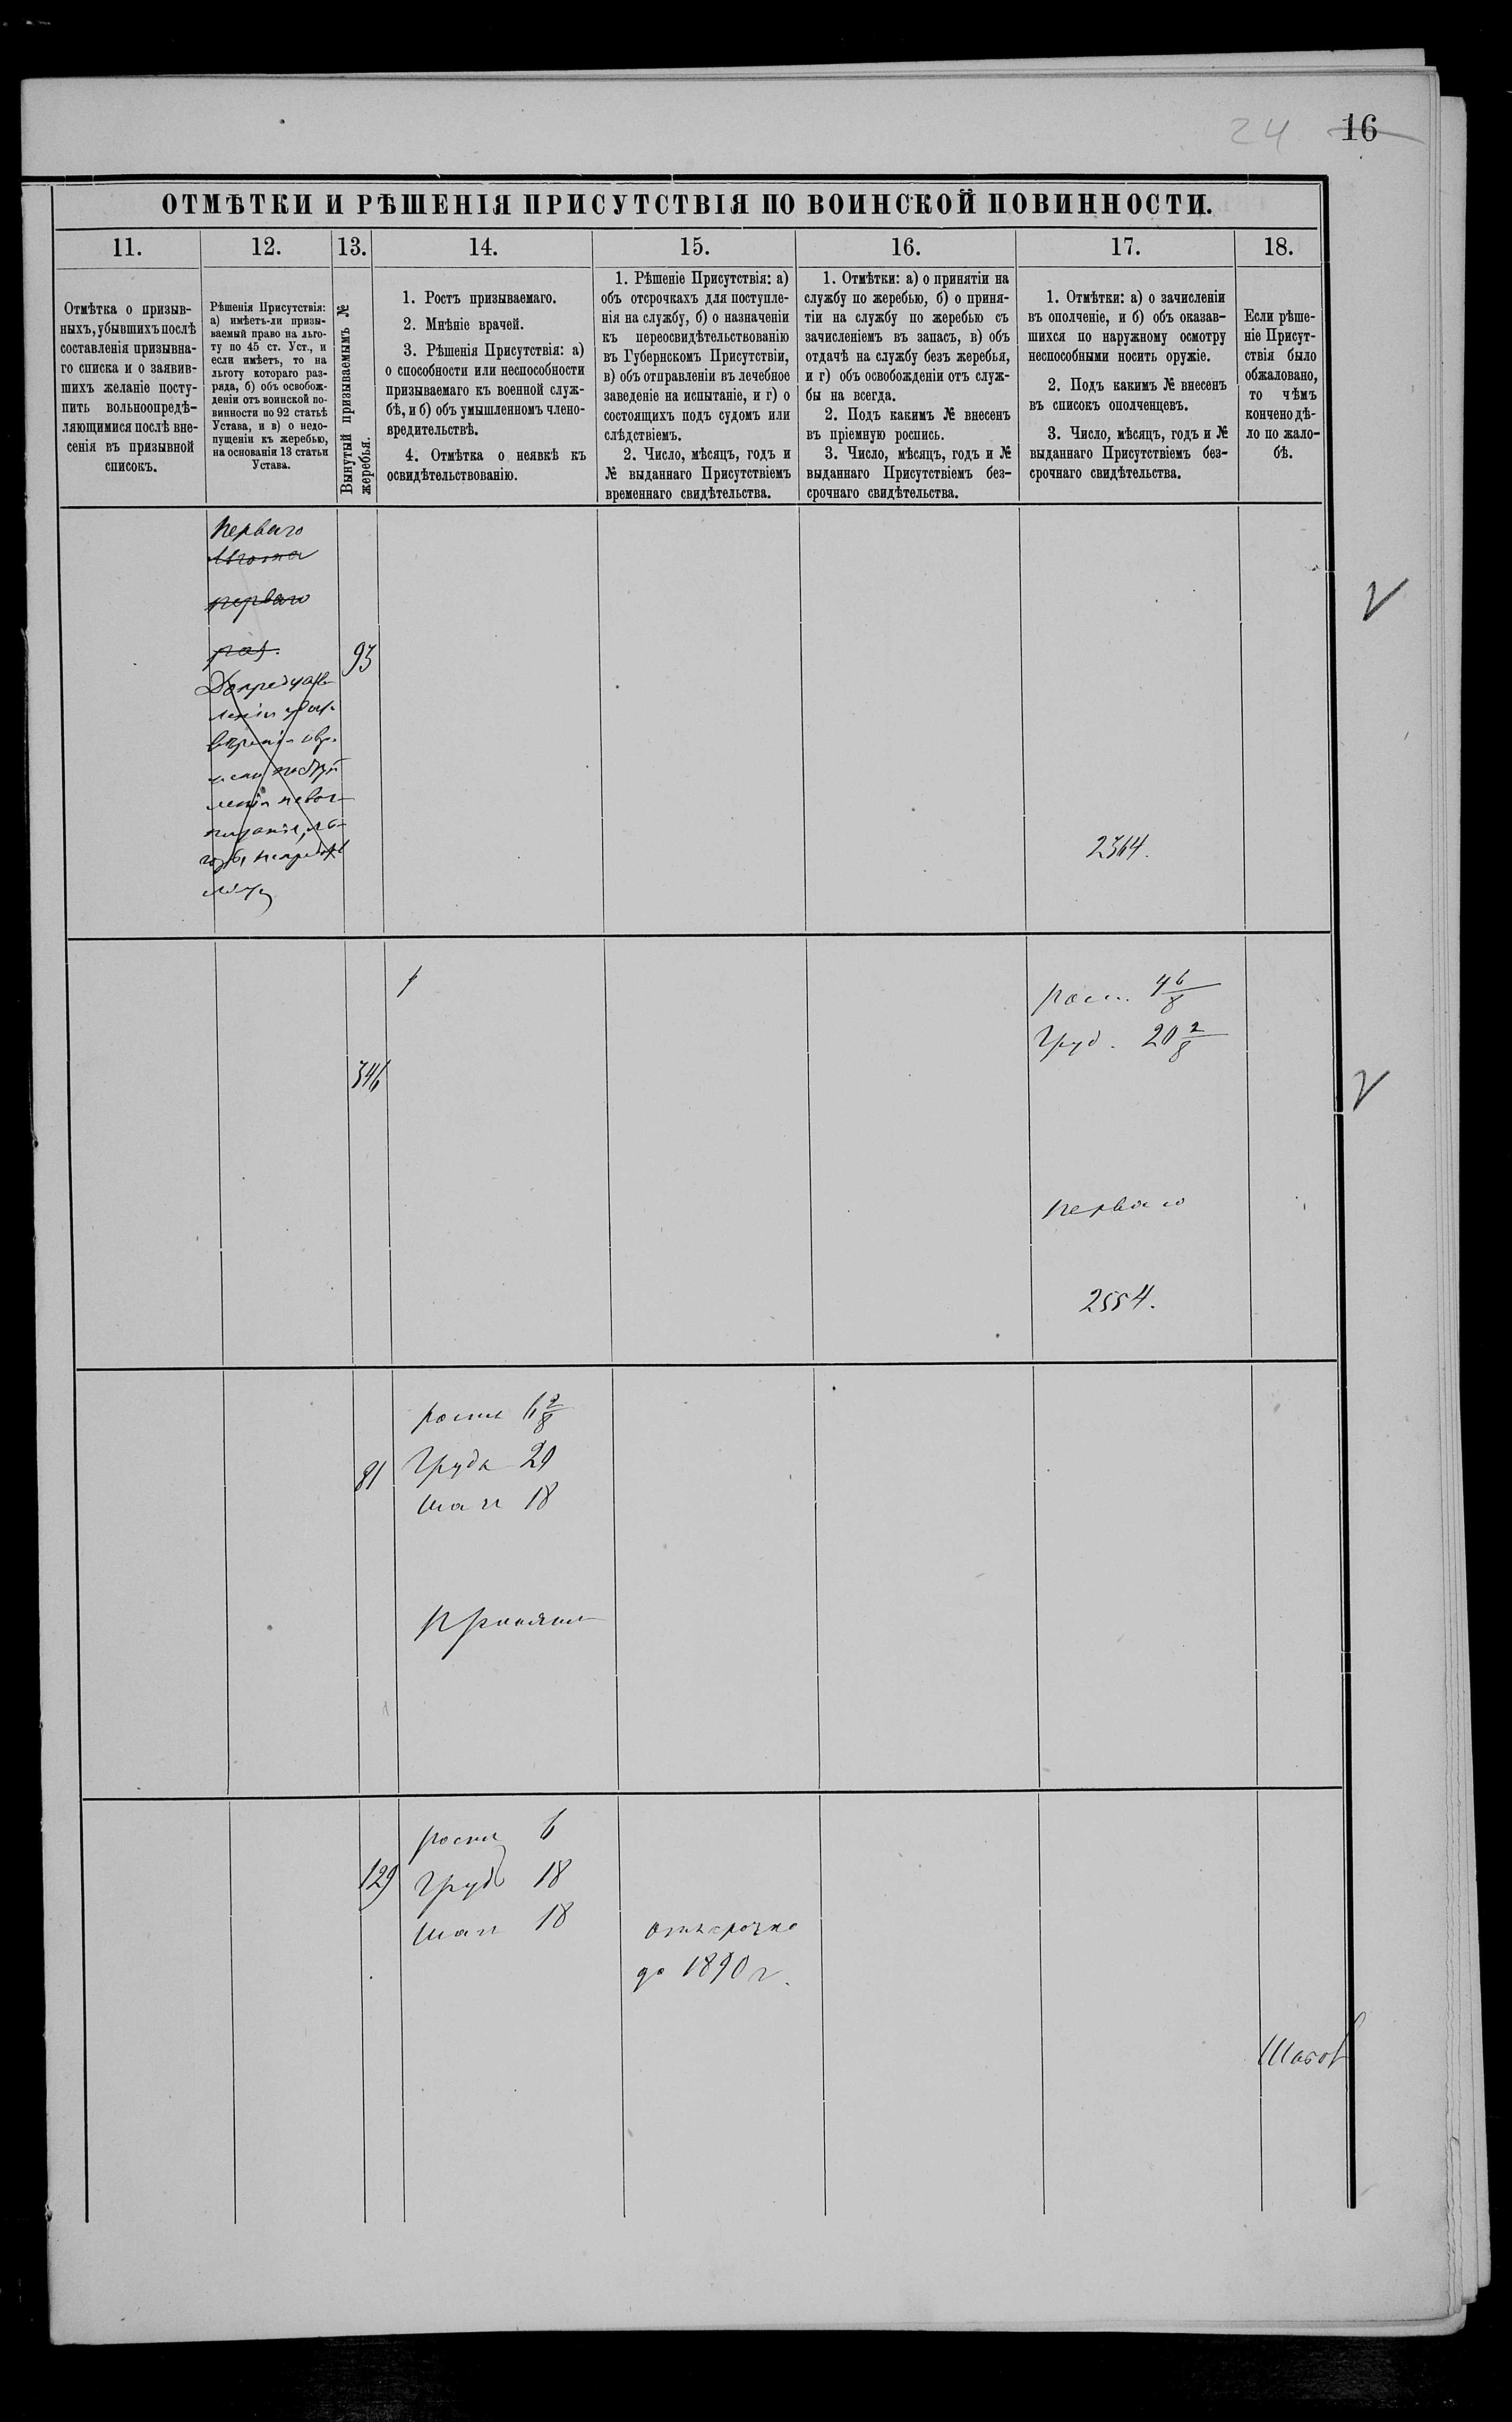 24 16
ОТМѢТКИ И РѢШЕНІЯ ПРИСУТСТВІЯ ПО ВОИНСКОЙ ПОВИННОСТИ.
11.
Отмѣтка о призыв-
ныхъ, убывшихъ послѣ
составленія призывна-
го списка и о заявив-
шихъ желаніе посту-
пить вольноопредѣ-
ляющимися послѣ вне-
сенія въ призывной
списокъ.
12.
Рѣшенія Присутствія:
а) имѣетъ-ли призы-
ваемый право на льго-
ту по 45 ст. Уст., и
если имѣетъ, то на
льготу котораго раз-
ряда, б) объ освобож-
деніи отъ воинской по-
винности по 92 статьѣ
Устава, и в) о недо-
пущеніи къ жеребью,
на основаніи 13 статьи
Устава.
13.
Вынутый призываемымъ №
жеребья.
14.
1. Ростъ призываемаго.
2. Мнѣніе врачей.
3. Рѣшенія Присутствія: а)
о способности или неспособности
призываемаго къ военной служ-
бѣ, и б) объ умышленномъ члено-
вредительствѣ.
4. Отмѣтка о неявкѣ къ
освидѣтельствованію.
15.
1. Рѣшеніе Присутствія: а)
объ отсрочкахъ для поступле-
нія на службу, б) о назначеніи
къ переосвидѣтельствованію
въ Губернскомъ Присутствіи,
в) объ отправленіи въ лечебное
заведеніе на испытаніе, и г) о
состоящихъ подъ судомъ или
слѣдствіемъ.
2. Число, мѣсяцъ, годъ и
№ выданнаго Присутствіемъ
временнаго свидѣтельства.
16.
1. Отмѣтки: а) о принятіи на
службу по жеребью, б) о приня-
тіи на службу по жеребью съ
зачисленіемъ въ запасъ, в) объ
отдачѣ на службу безъ жеребья,
и г) объ освобожденіи отъ служ-
бы на всегда.
2. Подъ какимъ № внесенъ
въ пріемную роспись.
3. Число, мѣсяцъ, годъ и №
выданнаго Присутствіемъ без-
срочнаго свидѣтельства.
17.
1. Отмѣтки: а) о зачисленіи
въ ополченіе, и б) объ оказав-
шихся по наружному осмотру
неспособными носить оружіе.
2. Подъ какимъ № внесенъ
въ списокъ ополченцевъ.
3. Число, мѣсяцъ, годъ и №
выданнаго Присутствіемъ без-
срочнаго свидѣтельства.
18.
Если рѣше-
ніе Присут-
ствія было
обжаловано,
то чѣмъ
кончено дѣ-
ло по жало-
бѣ.
перваго
перваго
раз.
93
2364.
346
рост. 4 6/8
груд. 20 2/8
перваго
2554.
81
ростъ 6 2/8
грудь 20
шаг 18
принятъ
129
ростъ 6
грудь 18
шаг 18
отсрочка
до 1890 г.